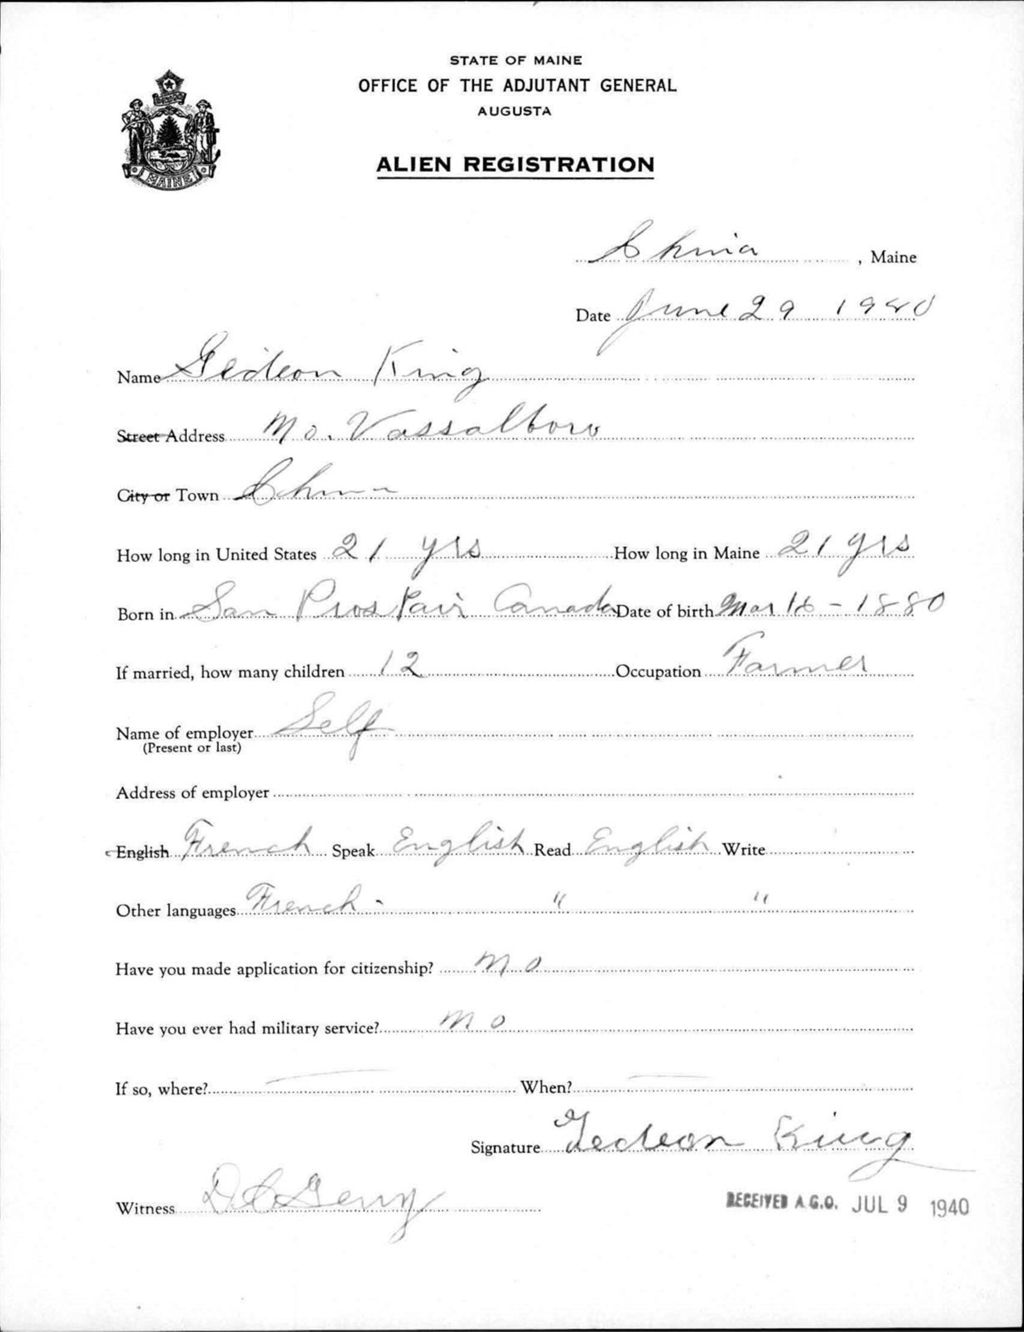 STATE OF MAINE
OFFICE OF THE ADJUTANT GENERAL
AUGUSTA
ALIEN REGISTRATION
MAINE
China, Maine
Date June 29 1940
Name Gedeon King
Street Address No. Vassalboro
City or Town China
How long in United States 21 yrs How long in Maine 21 yrs
Born in San Prospair Canada Date of birth Mar 16 - 1880
If married, how many children 12 Occupation Farmer
Name of employer Self
(Present or last)
Address of employer
English French Speak English Read English Write
Other languages French - " "
Have you made application for citizenship? No
Have you ever had military service? No
If so, where? When?
Signature Gedeon King
Witness
RECEIVED A.G.O. JUL 9 1940